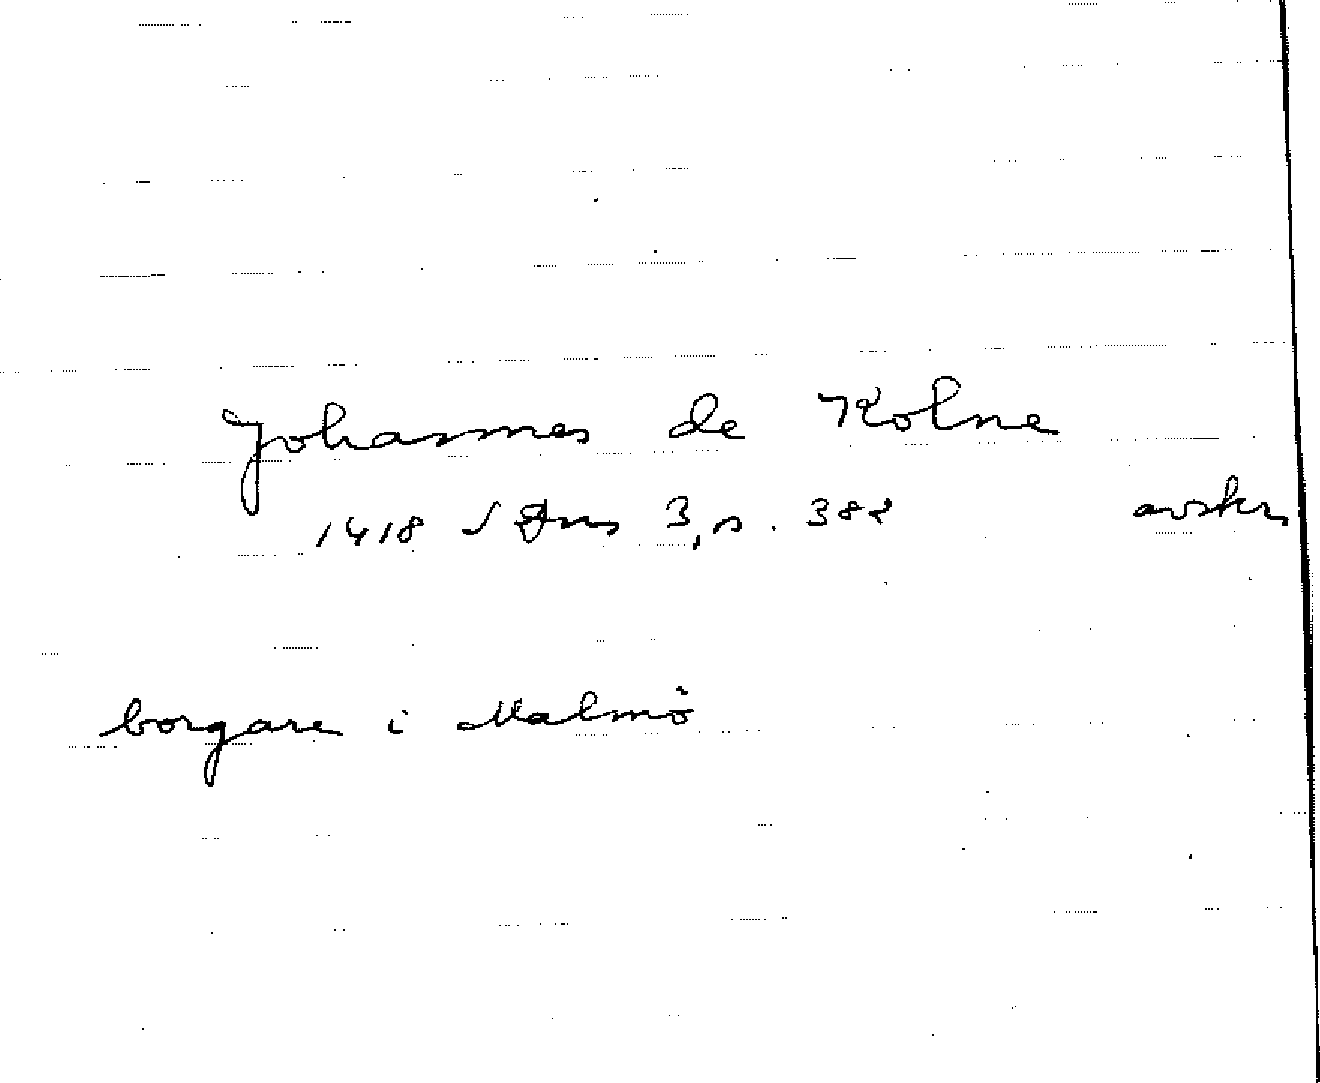 Johannes de Kolne
1418 SDns 3, s. 382 avskr
borgare i Malmö